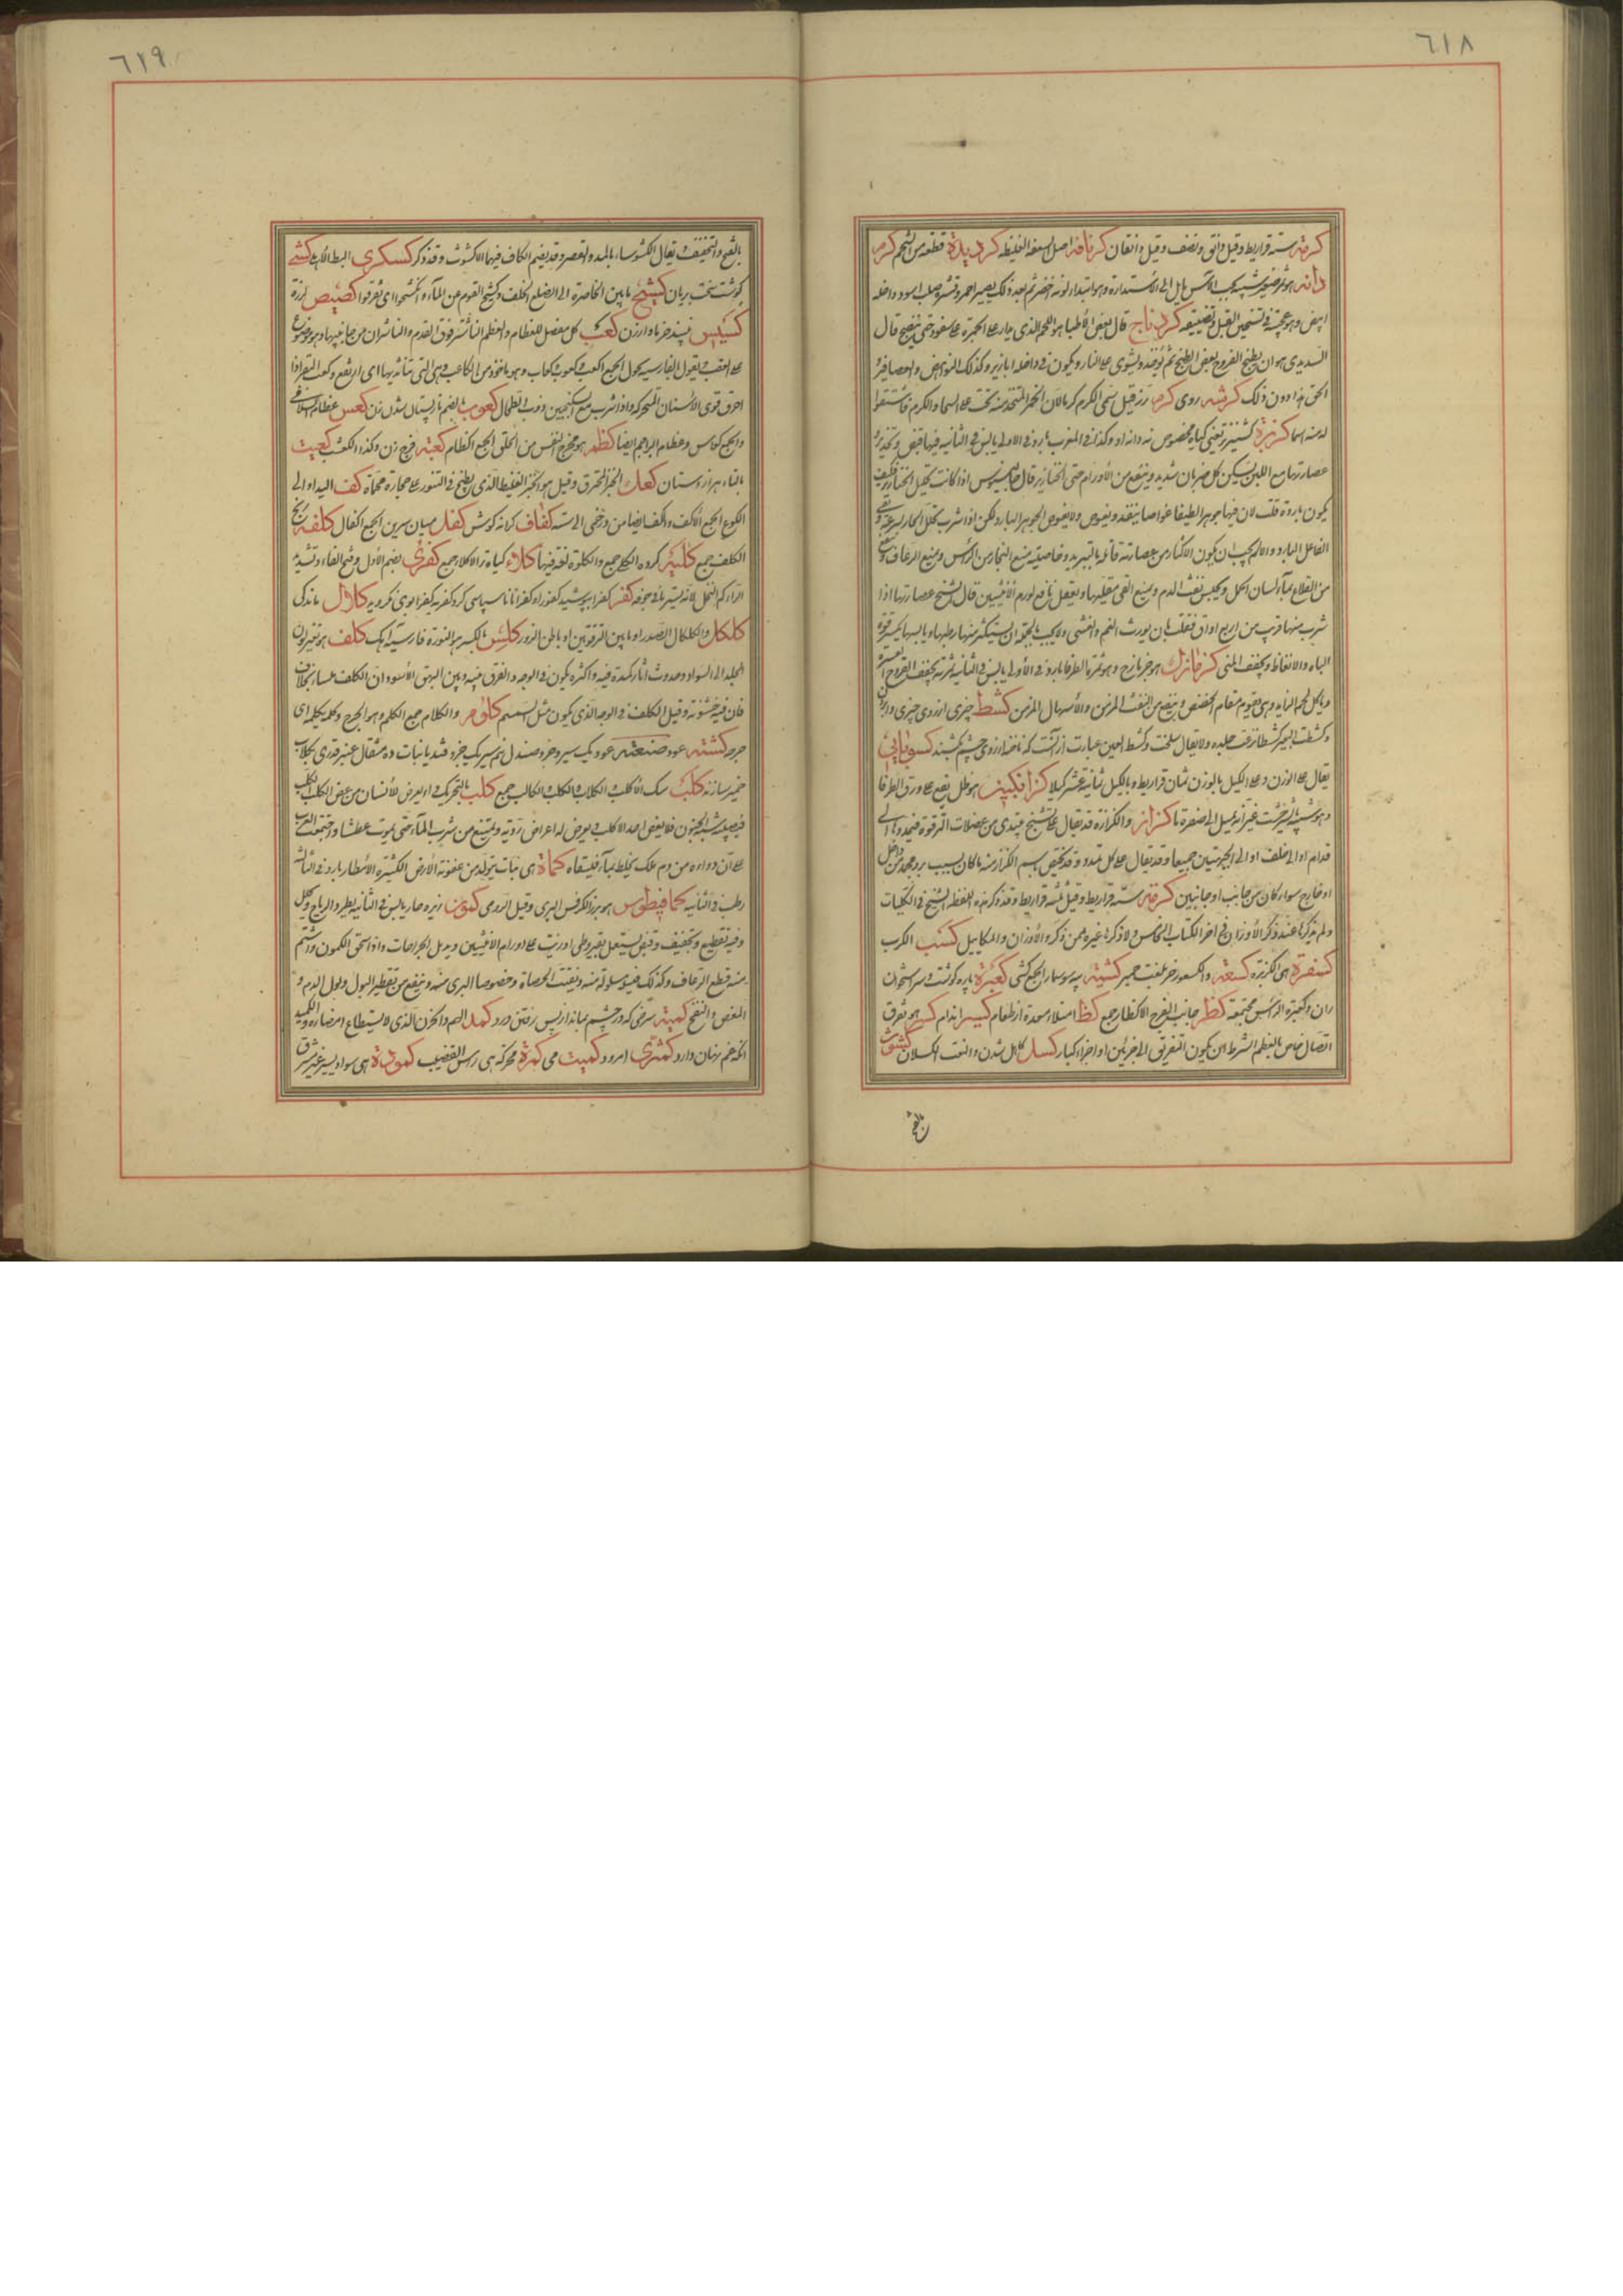 ٦١٨
كرمة ستة قراريط وقيل دانق ونصف وقيل دانقان كرنافه اصل السعفة الغليظ كردپاره قطعه من الشحم كرم
دانه هو ثمر صنوبر شبيه بحب الآس مايل الى الاستدارة وهو ابتداء لونه اخضر ثم بعد ذلك يصير احمر وقشره صلب اسود وداخله
ابيض وهو عجيب في تسخين القبل وتضييقه كردناج قال بعض الاطباء هو اللحم الذي يدار على الجمرة على سفود حتى ينضج قال
السديدي هو ان يطبخ الفروج بعض الطبخ ثم يؤخذ ويشوى على النار ويكون في داخله ابازير وكذلك النواهض والعصافير
الحق هذا دون ذلك كرشه روى كرم رز قيل سمى الكرم كرما لان الخمر المتخذ منه تحث على السخا والكرم فاشتقوا
له منه اسما كزبرة كشنيز يعني كياه مخصوص نه دانه او وكذا في المغرب باردة في الاولى يابس في الثانية فيها قبض وتخدير
عصارتها مع اللبن يسكن كل ضربان شديد وينفع من الاورام حتى الخنازير قال جالينوس اذا كانت تحلل الخنازير فكيف
يكون باردة قلت لان فيها جوهرا لطيفا غواصا ينفذ ويغوص ولا يغوص الجوهر البارد لكن اذا شرب تحلل الحار بسرعة وبقي
الفاعل البارد والالم يجب ان يكون الاكثار من عصارته قاتله بالتبريد وخاصيته منع البخار من الرأس ومنع الرعاف
من القلاع بماء لسان الحمل ويحبس نفث الدم ويمنع القي مقليها ويعقل نافع لورم الانثيين قال الشيخ عصارتها اذا
شرب منها قريب من اربع اواق فقلت بان يورث الغم والغشى ولا يجب بالجملة ان يستكثر منها رطبها ويابسها يكسر قوة
الباه والانعاظ ويجفف المنى كزمازك هو جزمازج وهو ثمرة الطرفا بارد في الاولى يابس في الثانية ثمرته يجفف القروح العسرة
وياكل لحم الزايد وهي يقوم مقام العفص وينفع من النفث المزمن والاسهال المزمن كشط چيزى از روى چيزى وا بردن
وكشطت البعير كشطا نزعت جلده ولا يقال سلخت وكشط العين عبارت از آنست كه ناخنه از روى چشم بكشند كسوباي
يقال على الوزن وعلى الكيل بالوزن ثمان قراريط وبالكيل ثمانية عشر كيلا كزانكبين هو طل يقع على ورق الطرفا
وهو شبيه بالشيرخشت غير انه يميل الى صفرة ما كزاز والكزازة قد يقال على تشنج يبتدى من عضلات الترقوة فيمددها الى
قدام او الى خلف او الى الجهتين جميعا وقد يقال على كل تمدد وقد يخص باسم الكزاز منه ما كان بسبب برد مجمد من داخل
او خارج سواء كان من جانب او جانبين كرمة ستة قراريط وقيل ثلثة قراريط وقد ذكر هذه اللفظة الشيخ في الكليات
ولم يذكرنا عند ذكر الاوزان في اخر الكتاب الخامس ولا ذكرنا غيره ممن ذكر الاوزان والمكاييل كسب الكرب
كسفرة هي الكزبره كسعة والكسعوم خر بلغت حمير كشيه پيه سوسمار الجمع كشى كعبرة پاره كوشت وسر استخوان
ران وكعبرة الرأس مجتمعه كظر جانب الفرج الاكظار جمع كظا امتلاء معدة از طعام كسر اندام كسر هو تفرق
اتصال خاص بالعظم الشرط ان يكون التفريق الى جزئين او اجزاء كبار كسل كاهل شدن والنعت الكسلان كشوث
بالفتح
٦١٩
بالفتح والتخفيف يقال الكشوساء بالمد والقصر وقد يضم الكاف فيهما الاكشوث وقد ذكر كسكرى البط الاهلى كشى
كوشت سخت بريان كشح مابين الخاصرة الى الضلع الخلف وكشح القوم عن الماء وانكشحوا اى تفرقوا كصيص لرزة
كسيس نبيذ خرما وارزن كعب كل مفصل للعظام والعظم الناشز فوق القدم والناشزان من جانبيها وهو موضوع
على العقب يقول الفارسيه بجول الجمع اكعب وكعوب وكعاب وهو ماخوذ من الكاعب وهي التي نتا ثديها اى ارتفع وكعب البقر اذا
احرق قوى الاسنان المتحركه واذا شرب مع السكنجبين اذوب الطحال كعوب بالضم نار پستان شدن زن كعس عظام السلامى
والجمع كعاس وعظام البراجم ايضا كظم هو مخرج النفس من الحلق الجمع الكظام كعبة فرج زن وكذا الكعثب كعيت
بالتاء هزار دستان كعك الخبز المحترق وقيل هو الخبز الغليظ الذي يطبخ في التنور على حجارة محماة كف اليد او الى
الكوع الجمع الاكف والكف ايضا من وخفى الى ستة كفاف كرانه كوش كفل ميان سرين الجمع اكفال كلفه رنج
الكلف جمع كليه كرده الكلى جمع والكلوة لغة فيها كلاء كياه تر الاكلاء جمع كفرى بضم الاول وفتح الفاء وتشديد
الراء كم النخل لانه يستر ما في جوفه كفر كفرا پوشيد كفورا وكفرانا ناسپاسى كرد كفر به يكفر اوى نكرويد كلال ماندكى
كلكل والكلكال الصدر او مابين الترقوتين او باطن الزور كلس بالكسر هو النورة فارسيه اهك كلف هو تغير لون
الجلد الى السواد وحدوث اثار كمدة فيه واكثره يكون في الوجه والفرق بينه وبين البهق الاسود ان الكلف املس بخلاف
فان فيه خشونة وقيل الكلف في الوجه الذي يكون مثل السمسم كلوم والكلام جمع الكلم وهو الجرح وكلمه يكلمه اى
جرحه كشته عود صنعته عود يك سير وجزو صندل نيم سير يك جزو قند يا نبات ده مثقال عنبر قدرى بكلاب
خمير سازند كلب سك الاكلب الكلاب الكلب الكالب جمع كلب بالتحريك داء يعرض للانسان من عض الكلب الكلب
فيصيبه شبه الجنون فلا يعض احدا الا كلب يعرض له اعراض ردية ويمتنع من شرب الماء حتى يموت عطشا واجتمعت العرب
على ان دواءه من دم ملك يخلط بماء فيسقاه كماة هي نبات يتولد من عفونة الارض الكثيرة الامطار بارد في الثالثة
رطب في الثانيه كمافيطوس هو بزر الكرفس البرى وقيل الرومى كمون زيره حار يابس في الثانية يطرد الرياح ويحلل
وفيه تقطيع وتجفيف وقبض يستعمل بقيروطى او زيت على اورام الانثيين ويدمل الجراحات واذا سحق الكمون واشتم
منه قطع الرعاف وكذلك فتيلة مبلولة منه ويفتت الحصاة وخصوصا البرى منه وينفع من تقطير البول وبول الدم و
المغص والنفخ كمنه سرخى كه در چشم بماند از پس رفتن درد كمد الهم والحزن الذى لا يستطاع امضاؤه والكميد
آنكه غم پنهان دارد كمثرى امرود كميت مى كمرة محركه هي راس القضيب كمودة هي سواد يسير غير مشرق